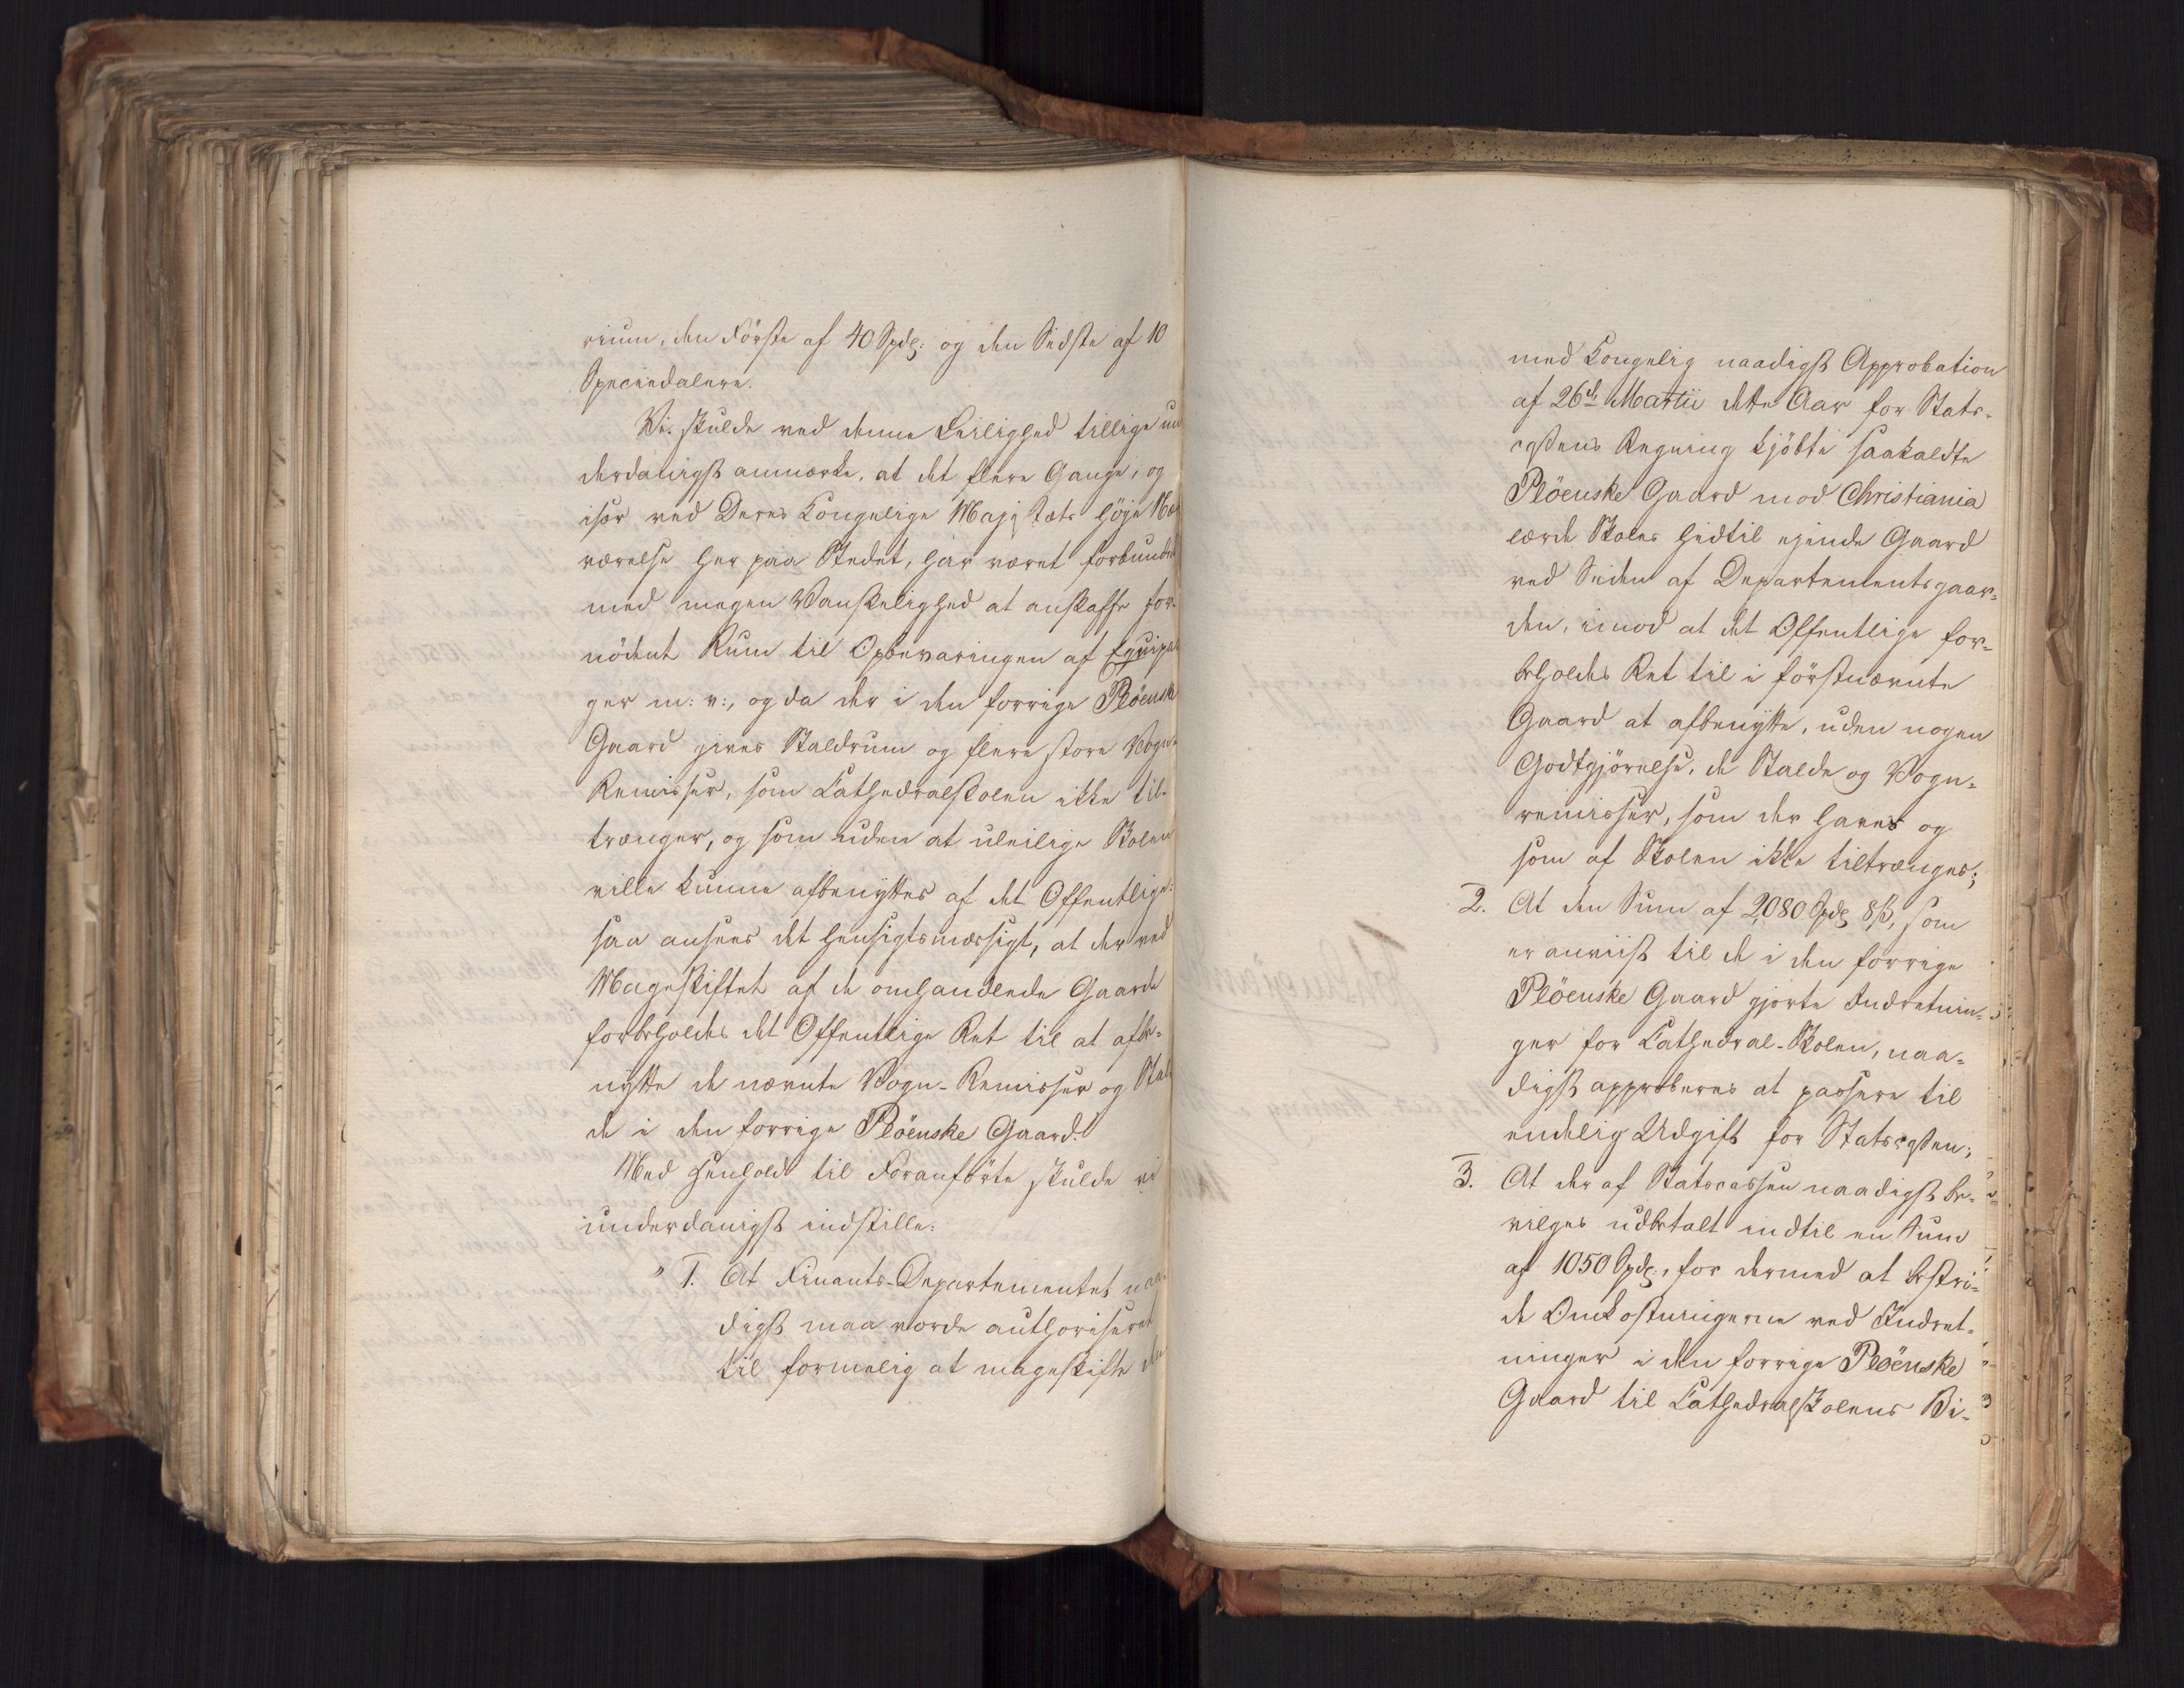 rium, den Förste af 40 Spdlr: og den Sidste af 10
Speciedalere.
Vi skulde ved denne Leilighed tillige un
derdanigst anmærke, at det flere Gange, og
især ved Deres Kongelige Majestæts höje Nær
værelse her paa Stedet, har været forbundet
med megen Vanskelighed at anskaffe for-
nödent Rum til Opbevaringen af Equipa
ger m: v:, og da der i den forrige Plöenske
Gaard gives Staldrum og flere store Vogn-
Remisser, som Cathedralskolen ikke til-
trænger, og som uden at uleilige Skolen
ville kunne afbenyttes af det Offentlige:
saa ansees det hensigtsmæssigt, at der ved
Mageskiftet af de omhandlede Gaarde
forbeholdes det Offentlige Ret til at afbe-
nytte de nævnte Vogn-Remisser og Stal
de i den forrige Plöenske Gaard.
Med Henhold til Foranförte skulde vi
underdanigst indstille:
" 1. At Finants-Departementet naa-
digst maa vorde authoriseret
til formelig at mageskifte den
med Kongelig naadigst Approbation
af 26de Martii dette Aar for Stats-
cassens Regning kjöbte saakaldte
Plöenske Gaard mod Christiania
lærde Skoles hidtil ejende Gaard
ved Siden af Departementsgaar-
den, imod at det Offentlige for-
beholdes Ret til i förstnævnte
Gaard at afbenytte, uden nogen
Godtgjörelse, de Stalde og Vogn-
remisser, som der haves og
som af Skolen ikke tiltrænges;
2. At den Sum af 2,080 Spdlr 8 ß, som
er anviist til de i den forrige
Plöenske Gaard gjorte Indretnin-
ger for Cathedral-Skolen, naa-
digst approberes at passere til
endelig Udgift for Statscassen;
3. At der af Statscassen naadigst be-
vilges udbetalt indtil en Sum
af 1050 Spdlr:, for dermed at bestri-
de Omkostningerne ved Indret-
ninger i den forrige Plöenske
Gaard til Cathedralskolens Bi-